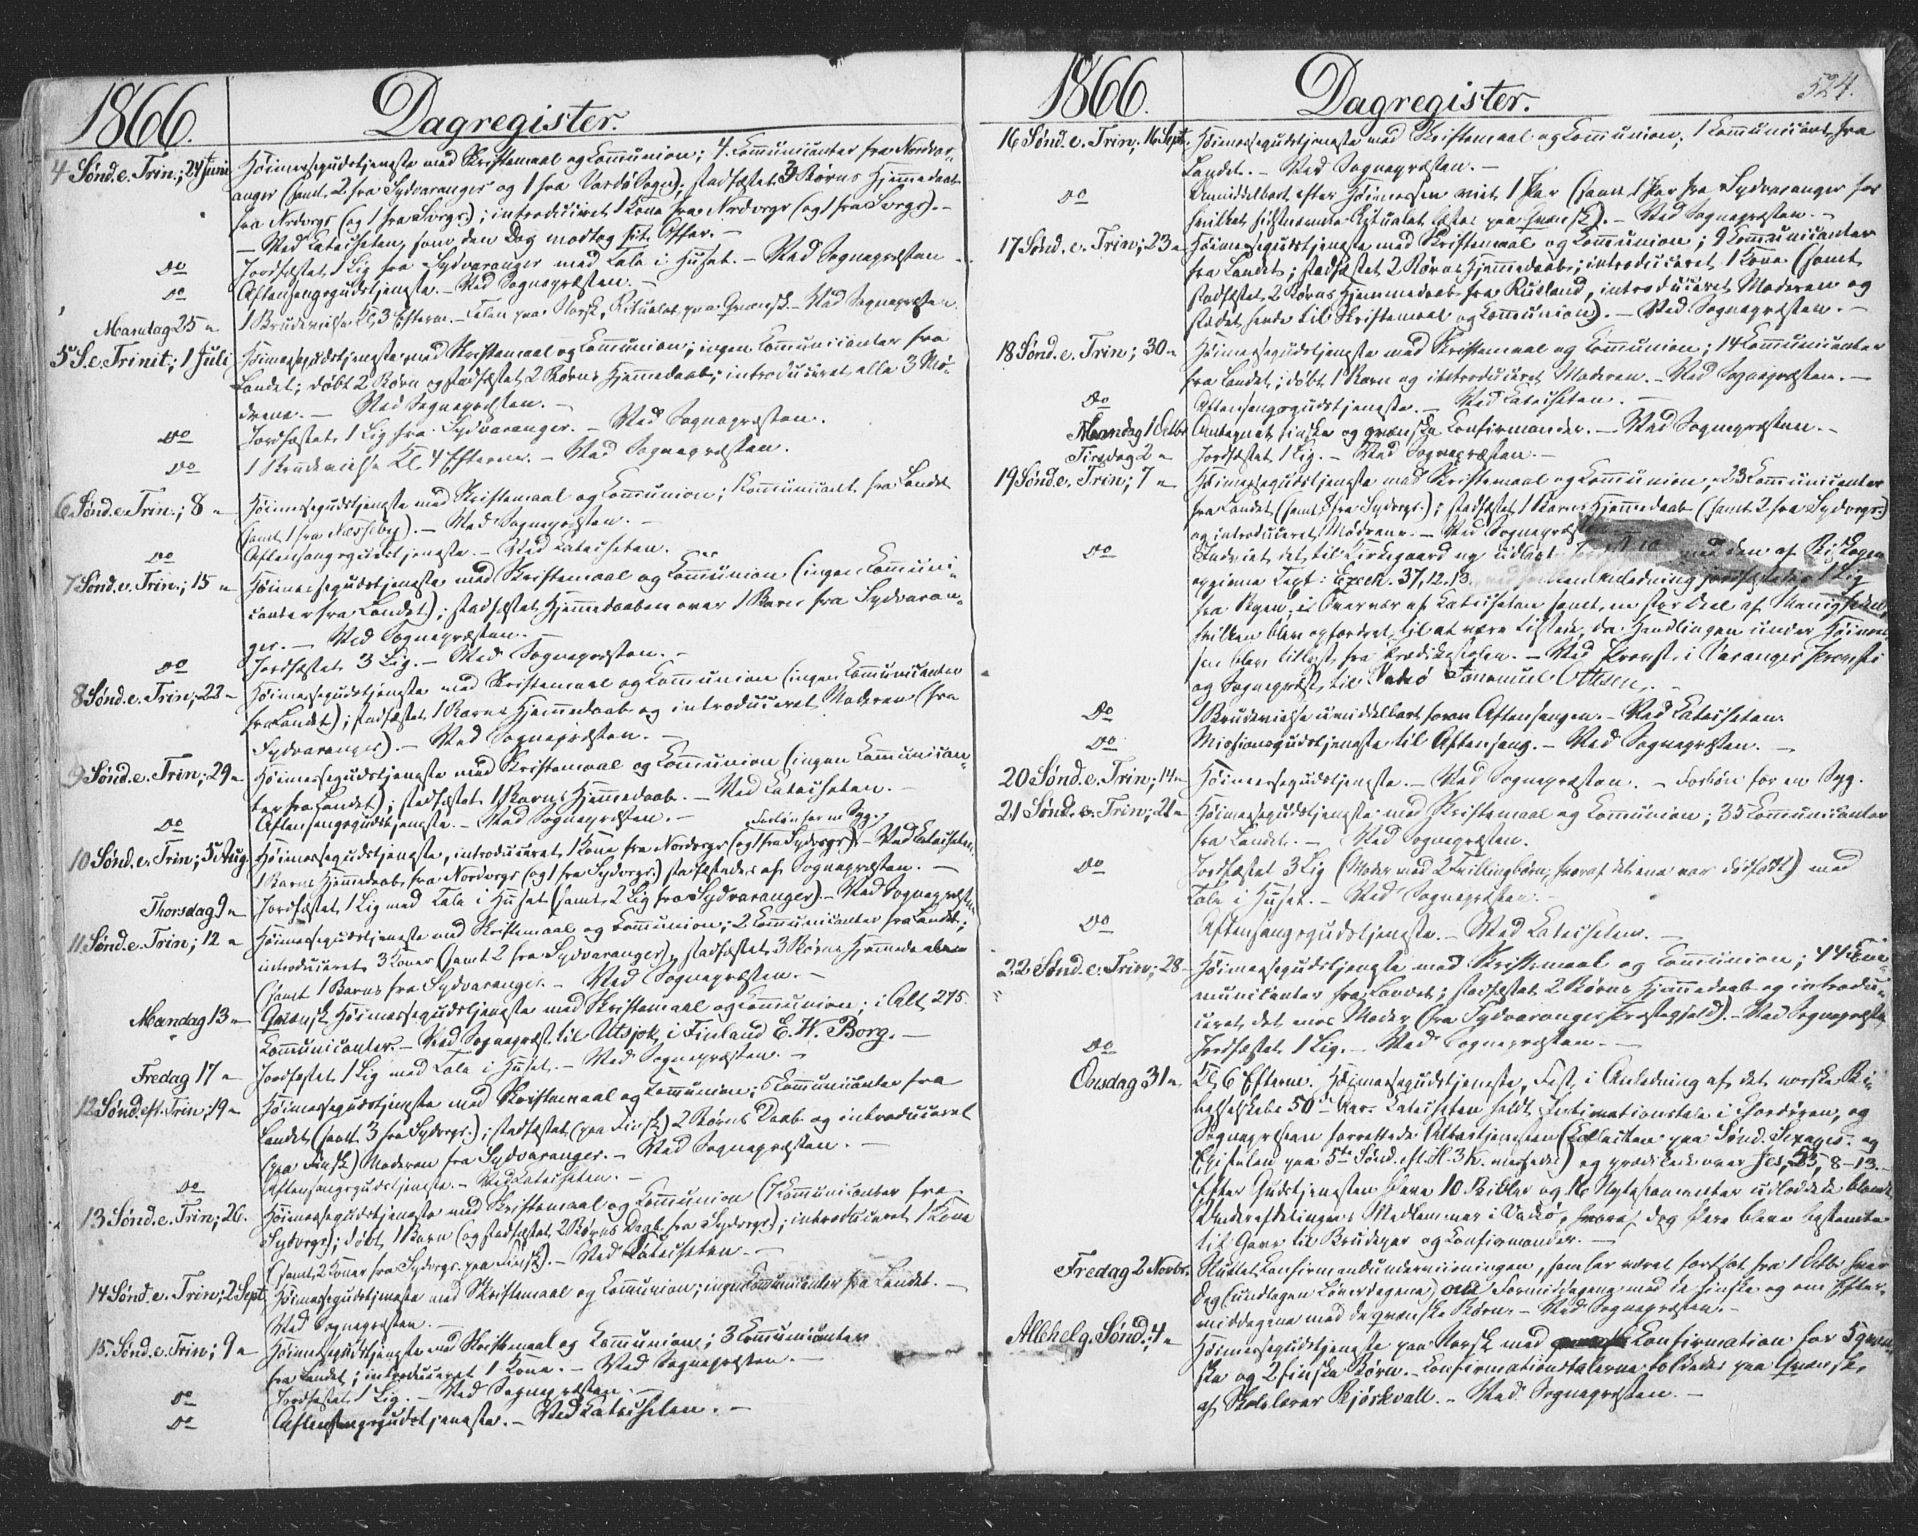 1866.
Dagregister.
4 Sønd. e. Trin.; 24 Juni
Høimessegudstjeneste med Skriftemaal og Communion; 4 Communicanter fra Nordvar-
anger (samt 2 fra Sydvaranger og 1 fra Vardø Sogn); stadfæstet 3 Børns Hjemmedaab
fra Nrdvrgr (og 1 fra Svrgr.); introduceret 1 Kone fra Nrdvrgr (og 1 fra Svrgr). —
— Ved Catecheten, som den Dag modtog sit Offer. —
Do Jordfæstet 1 Lig fra Sydvaranger med Tale i Huset. — Ved Sognepræsten —
Do Aftensangsgudstjeneste. — Ved Sognepræsten. —
Mandag 25 " 1 Brudevielse Kl. 3 Efterm. — Talen paa Norsk, Ritualet paa Qvænsk. — Ved Sognepræsten.
5 S. e. Trinit; 1 Juli Høimessegudstjeneste med Skriftemaal og Communion; ingen Communicanter fra
Landet; døbt 2 Børn og stadfæstet 2 Børns Hjemmedaab; introduceret alle 3 Mø-
drene. — Ved Sognepræsten. —
Do Jordfæstet 1 Lig fra Sydvaranger. — Ved Sognepræsten.
Do 1 Brudevielse Kl. 4 Efterm. — Ved Sognepræsten.
6 Sønd. e. Trin.; 8 " Høimessegudstjeneste med Skriftemaal og Communion; 1 Communicant fra Landet
(samt 1 fra Næsseby). — Ved Sognepræsten. —
Do Aftensangsgudstjeneste. — Ved Catecheten.
7 Sønd. e. Trin.; 15 " Høimessegudstjeneste med Skriftemaal og Communion (ingen Communi-
canter fra Landet); stadfæstet Hjemmedaaben over 1 Barn fra Sydvaran-
ger. — Ved Sognepræsten. —
Do Jordfæstet 3 Lig. — Ved Sognepræsten. —
8 Sønd. e. Trin.; 22 " Høimessegudstjeneste med Skriftemaal og Communion (ingen Communicanter
fra Landet); stadfæstet 1 Barns Hjemmedaab og introduceret Moderen (fra
Sydvaranger). — Ved Sognepræsten. —
9 Sønd. e. Trin.; 29 " Høimessegudstjeneste med Skriftemaal og Communion (ingen Communican-
ter fra Landet); stadfæstet 1 Barns Hjemmedaab. — Ved Catecheten. —
Do Aftensangsgudstjeneste. — Ved Sognepræsten. — Forbøn for en Syg.
10 Sønd. e. Trin; 5 Aug. Høimessegudstjeneste, introduceret 1 Kone fra Nordvrgr (og 1 fra Sydvrgr). — Ved Catecheten.
1 Barns Hjemmedaab fra Nordvrgr (og 1 fra Sydvrgr.) stadfæstedes af Sognepræsten. —
Thorsdag 9 " Jordfæstet 1 Lig med Tale i Huset (samt 2 Lig fra Sydvaranger). — Ved Sognepræsten
11 Sønd. e. Trin; 12 " Høimessegudstjeneste med Skriftemaal og Communion; 2 Communicanter fra Landet;
introduceret 3 Koner (samt 2 fra Sydvaranger), stadfæstet 3 Børns Hjemmedaab
(samt 1 Barns fra Sydvaranger. — Ved Sognepræsten. —
Mandag 13 " Qvænsk Høimessegudstjeneste med Skriftemaal og Communion; i Alt 275
Communicanter. — Ved Sognepræst til Utsjok i Finland E. W. Borg. —
Fredag 17 " Jordfæstet 1 Lig med Tale i Huset. — Ved Sognepræsten. —
12 Sønd. eft. Trin; 19 " Høimessegudstjeneste med Skriftemaal og Communion; 6 Communicanter fra
Landet (samt 3 fra Sydvrgr.); stadfæstet (paa Finsk) 2 Børns Daab og introduceret
(paa Finsk) Moderen fra Sydvaranger. — Ved Sognepræsten. —
Do Aftensangsgudstjeneste. — Ved Catecheten. —
13 Sønd. e. Trin; 26. Høimessegudstjeneste med Skriftemaal og Communion (7 Communicanter fra
Sydvrgr); døbt 1 Barn (og stadfæstet 2 Børns Daab fra Sydvrgr); introduceret 1 Kone
(samt 2 Koner fra Sydvrgr. paa Finsk). — Ved Catecheten. —
14 Sønd. e. Trin; 2 Sept Høimessegudstjeneste med Skriftemaal og Communion; ingen Communicanter fra Landet. —
Ved Sognepræsten. —
15. Sønd. e. Trin; 9 " Høimessegudstjeneste med Skriftemaal og Communion; 3 Communicanter
fra Landet; introduceret 1 Kone. — Ved Sognepræsten. —
Do Jordfæstet 1 Lig. — Ved Sognepræsten. —
Do Aftensangsgudstjeneste. — Ved Catecheten. —
1866.
Dagregister.
524.
16 Sønd. e. Trin; 16 Sept. Høimessegudstjeneste med Skriftemaal og Communion; 1 Communicant fra
Landet. — Ved Sognepræsten. —
Do Umiddelbart efter Høimessen viet 1 Par (samt 1 Par fra Sydvaranger for
hvilket sidstnævnte Ritualet læstes paa Qvænsk). — Ved Sognepræsten. —
17 Sønd. e. Trin; 23 " Høimessegudstjeneste med Skriftemaal og Communion; 9 Communicanter
fra Landet; stadfæstet 2 Børns Hjemmedaab; introduceret 1 Kone (samt
stadfæstet 2 Børns Hjemmedaab fra Rusland, introduceret Moderen og
stedet hende til Skriftemaal og Communion). — Ved Sognepræsten. —
18 Sønd. e. Trin; 30 " Høimessegudstjeneste med Skriftemaal og Communion; 14 Communicanter
fra Landet; døbt 1 Barn og introduceret Moderen. — Ved Sognepræsten. —
Do Aftensangsgudstjeneste. — Ved Catecheten. —
Mandag 1 Octbr Antegnet finske og qvænske Confirmander. — Ved Sognepræsten. —
Tirsdag 2 " Jordfæstet 1 Lig. — Ved Sognepræsten. —
19 Sønd. e. Trin; 7 " Høimessegudstjeneste med Skriftemaal og Communion, 23 Communicanter
fra Landet (samt 8 fra Sydvrgr.); stadfæstet 1 Barns Hjemmedaab (samt 2 fra Sydvrgr.)
og introduceret Mødrene. — Ved Sognepræst
Do Indviet det til Kirkegaard ny udlagt med den af Biskopen
opgivne Text: Ezech. 37, 12. 13. ved hvilken Anledning jordfæstedes 1 Lig
fra Byen, i Overvær af Catecheten samt en stor Deel af Menigheden,
hvilken blev opfordret til at være tilstede, da Handlingen under Høimes-
sen blev tillyst fra Prædikestolen. — Ved Provst i Varanger Provsti
og Sognepræst til Vadsø Immanuel Ottesen. —
Do 1 Brudevielse umiddelbart foran Aftensangen. — Ved Catecheten.
Do Missionsgudstjeneste til Aftensang. — Ved Sognepræsten. —
20 Sønd. e. Trin; 14 " Høimessegudstjeneste. — Ved Sognepræsten. — Forbøn for en Syg.
21 Sønd. e. Trin; 21 " Høimessegudstjeneste med Skriftemaal og Communion; 35 Communicanter
fra Landet. — Ved Sognepræsten.
Do Jordfæstet 3 Lig (Moder med 2 Tvillingbørn, hvoraf det ene var dødfødt) med
Tale i Huset. — Ved Sognepræsten. —
Do Aftensangsgudstjeneste. — Ved Catecheten. —
22 Sønd. e. Trin; 28 Høimessegudstjeneste med Skriftemaal og Communion; 44 Com-
municanter fra Landet; stadfæstet 2 Børns Hjemmedaab og introdu-
ceret det enes Moder (fra Sydvarangers Præstegjeld). — Ved Sognepræsten
Do Jordfæstet 1 Lig. — Ved Sognepræsten. —
Onsdag 31 " Kl. 6 Efterm. Høimessegudstjeneste, Fest i Anledning af det norske Bi-
belselskabs 50de Aar. Catecheten holdt Intimationstale i Chordøren, og
Sognepræsten forrettede Altertjenesten (Collecten paa Sønd. Sexages. og
Epistelen paa 5te Sønd. eft. H. 3 K. messedes) og prædikede over Jes. 55, 8–13. —
Efter Gudstjenesten bleve 10 Bibler og 16 Nytestamenter uddeelte blandt
Underafdelingens Medlemmer i Vadsø, hvoraf dog flere bleve bestemte
til Gave til Brudepar og Confirmander. —
Fredag 2 Novbr. Sluttet Confirmandundervisningen, som har været fortsat fra 1 Octbr hver
Dag (undtagen Løverdagene) om Formiddagene med de finske og om Efter-
middagene med de qvænske Børn. — Ved Sognepræsten. —
Allehelg. Sønd.; 4 " Høimessegudstjeneste paa Norsk med Confirmation for 5 qvæn-
ske og 2 finske Børn. — Confirmationstalerne tolkedes paa Qvænsk,
af Skolelærer Bjørkvall. — Ved Sognepræsten. —